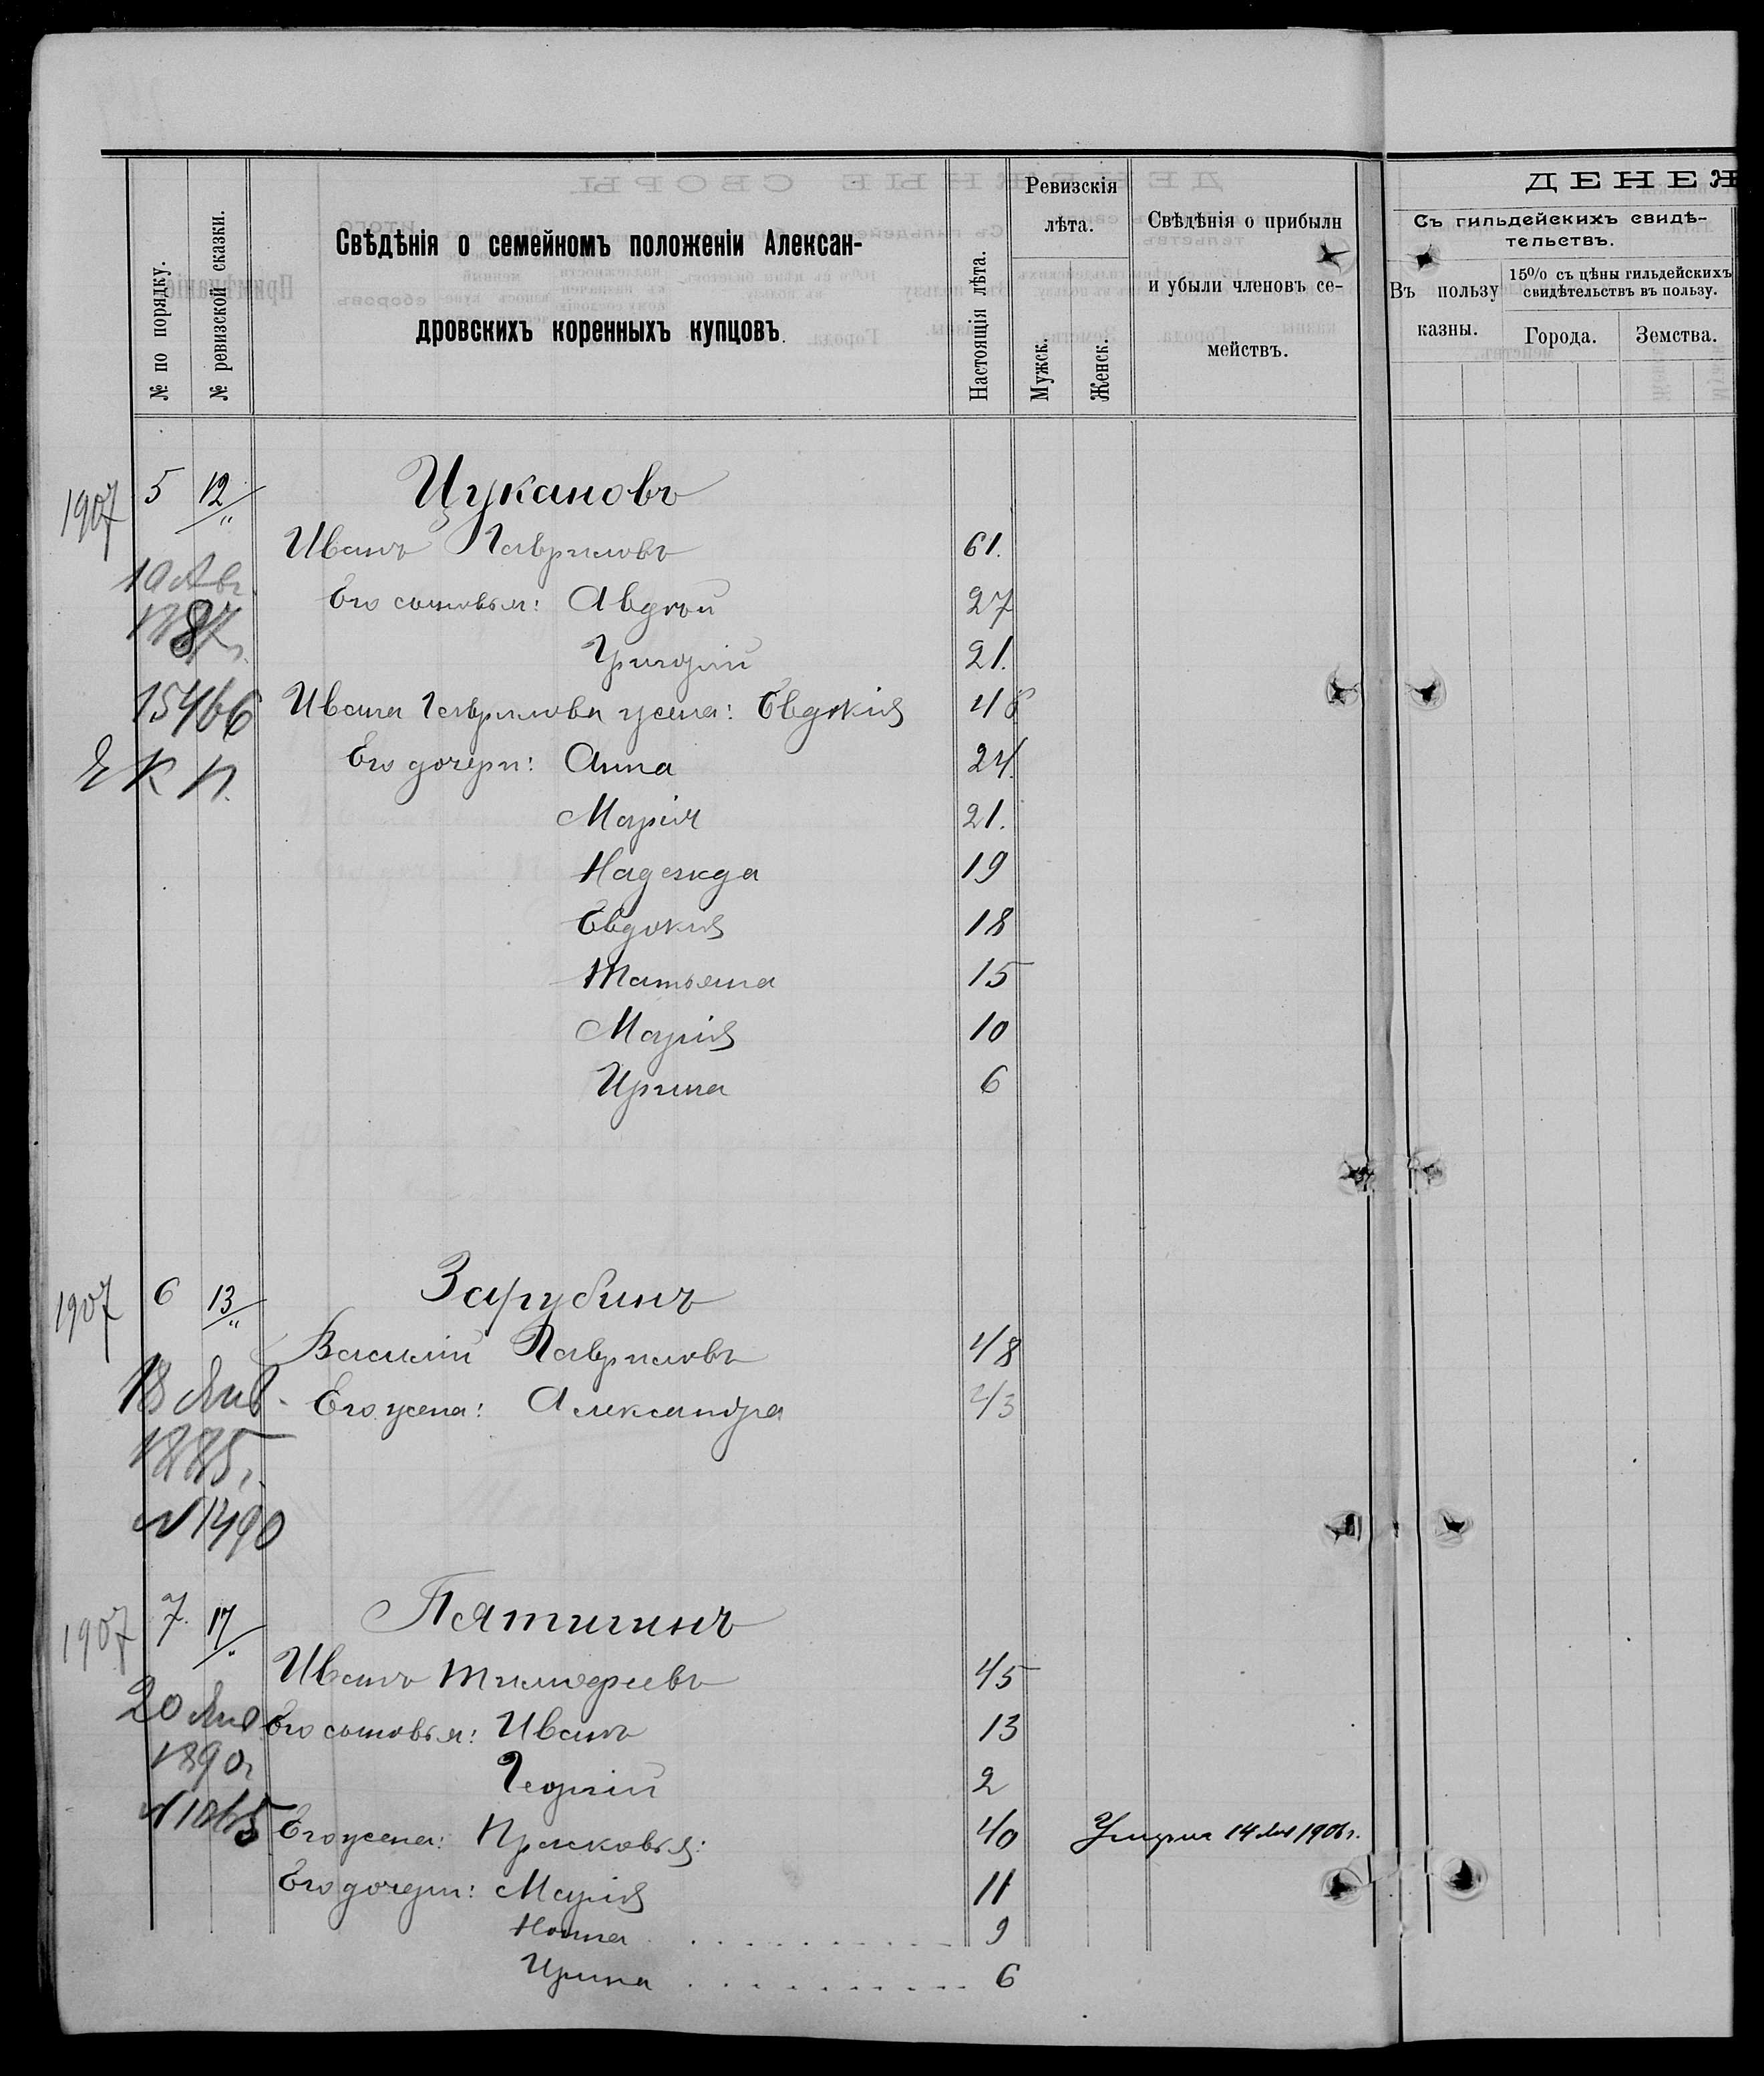 № по порядку.
№ ревизской сказки.
Свѣдѣнія о семейномъ положеніи Алексан-
дровскихъ коренныхъ купцовъ.
Настоящія лѣта.
Ревизскія
лѣта.
Мужск.
Женск.
Свѣдѣнія о прибыли
и убыли членовъ се-
мействъ.
ДЕНЕЖ
Съ гильдейскихъ свидѣ-
тельствъ.
Въ пользу
казны.
15% съ цѣны гильдейскихъ
свидѣтельствъ въ пользу.
Города.
Земства.
1907 5 12 Цукановъ
Иванъ Гавриловъ 61.
Его сыновья: Авдѣй 27
Григорій 21.
15466 Ивана Гаврилова жена: Евдокія 46
Его дочери: Анна 24.
Марія 21.
Надежда 19
Евдокія 18
Татьяна 15
Марія 10
Ирина 6
1907 6 13 Зарубинъ
Василій Гавриловъ 48
18 Янв. Его жена: Александра 43
1885 г.
№ 1490
1907 7. 17 Пятигинъ
Иванъ Тимофеевъ 45
20 Янв Его сыновья: Иванъ 13
1890 г Георгій 2
Его жена: Прасковья: 40 Умерла 14 1906 г.
Его дочери: Марія 11
Нонна 9
Ирина 6